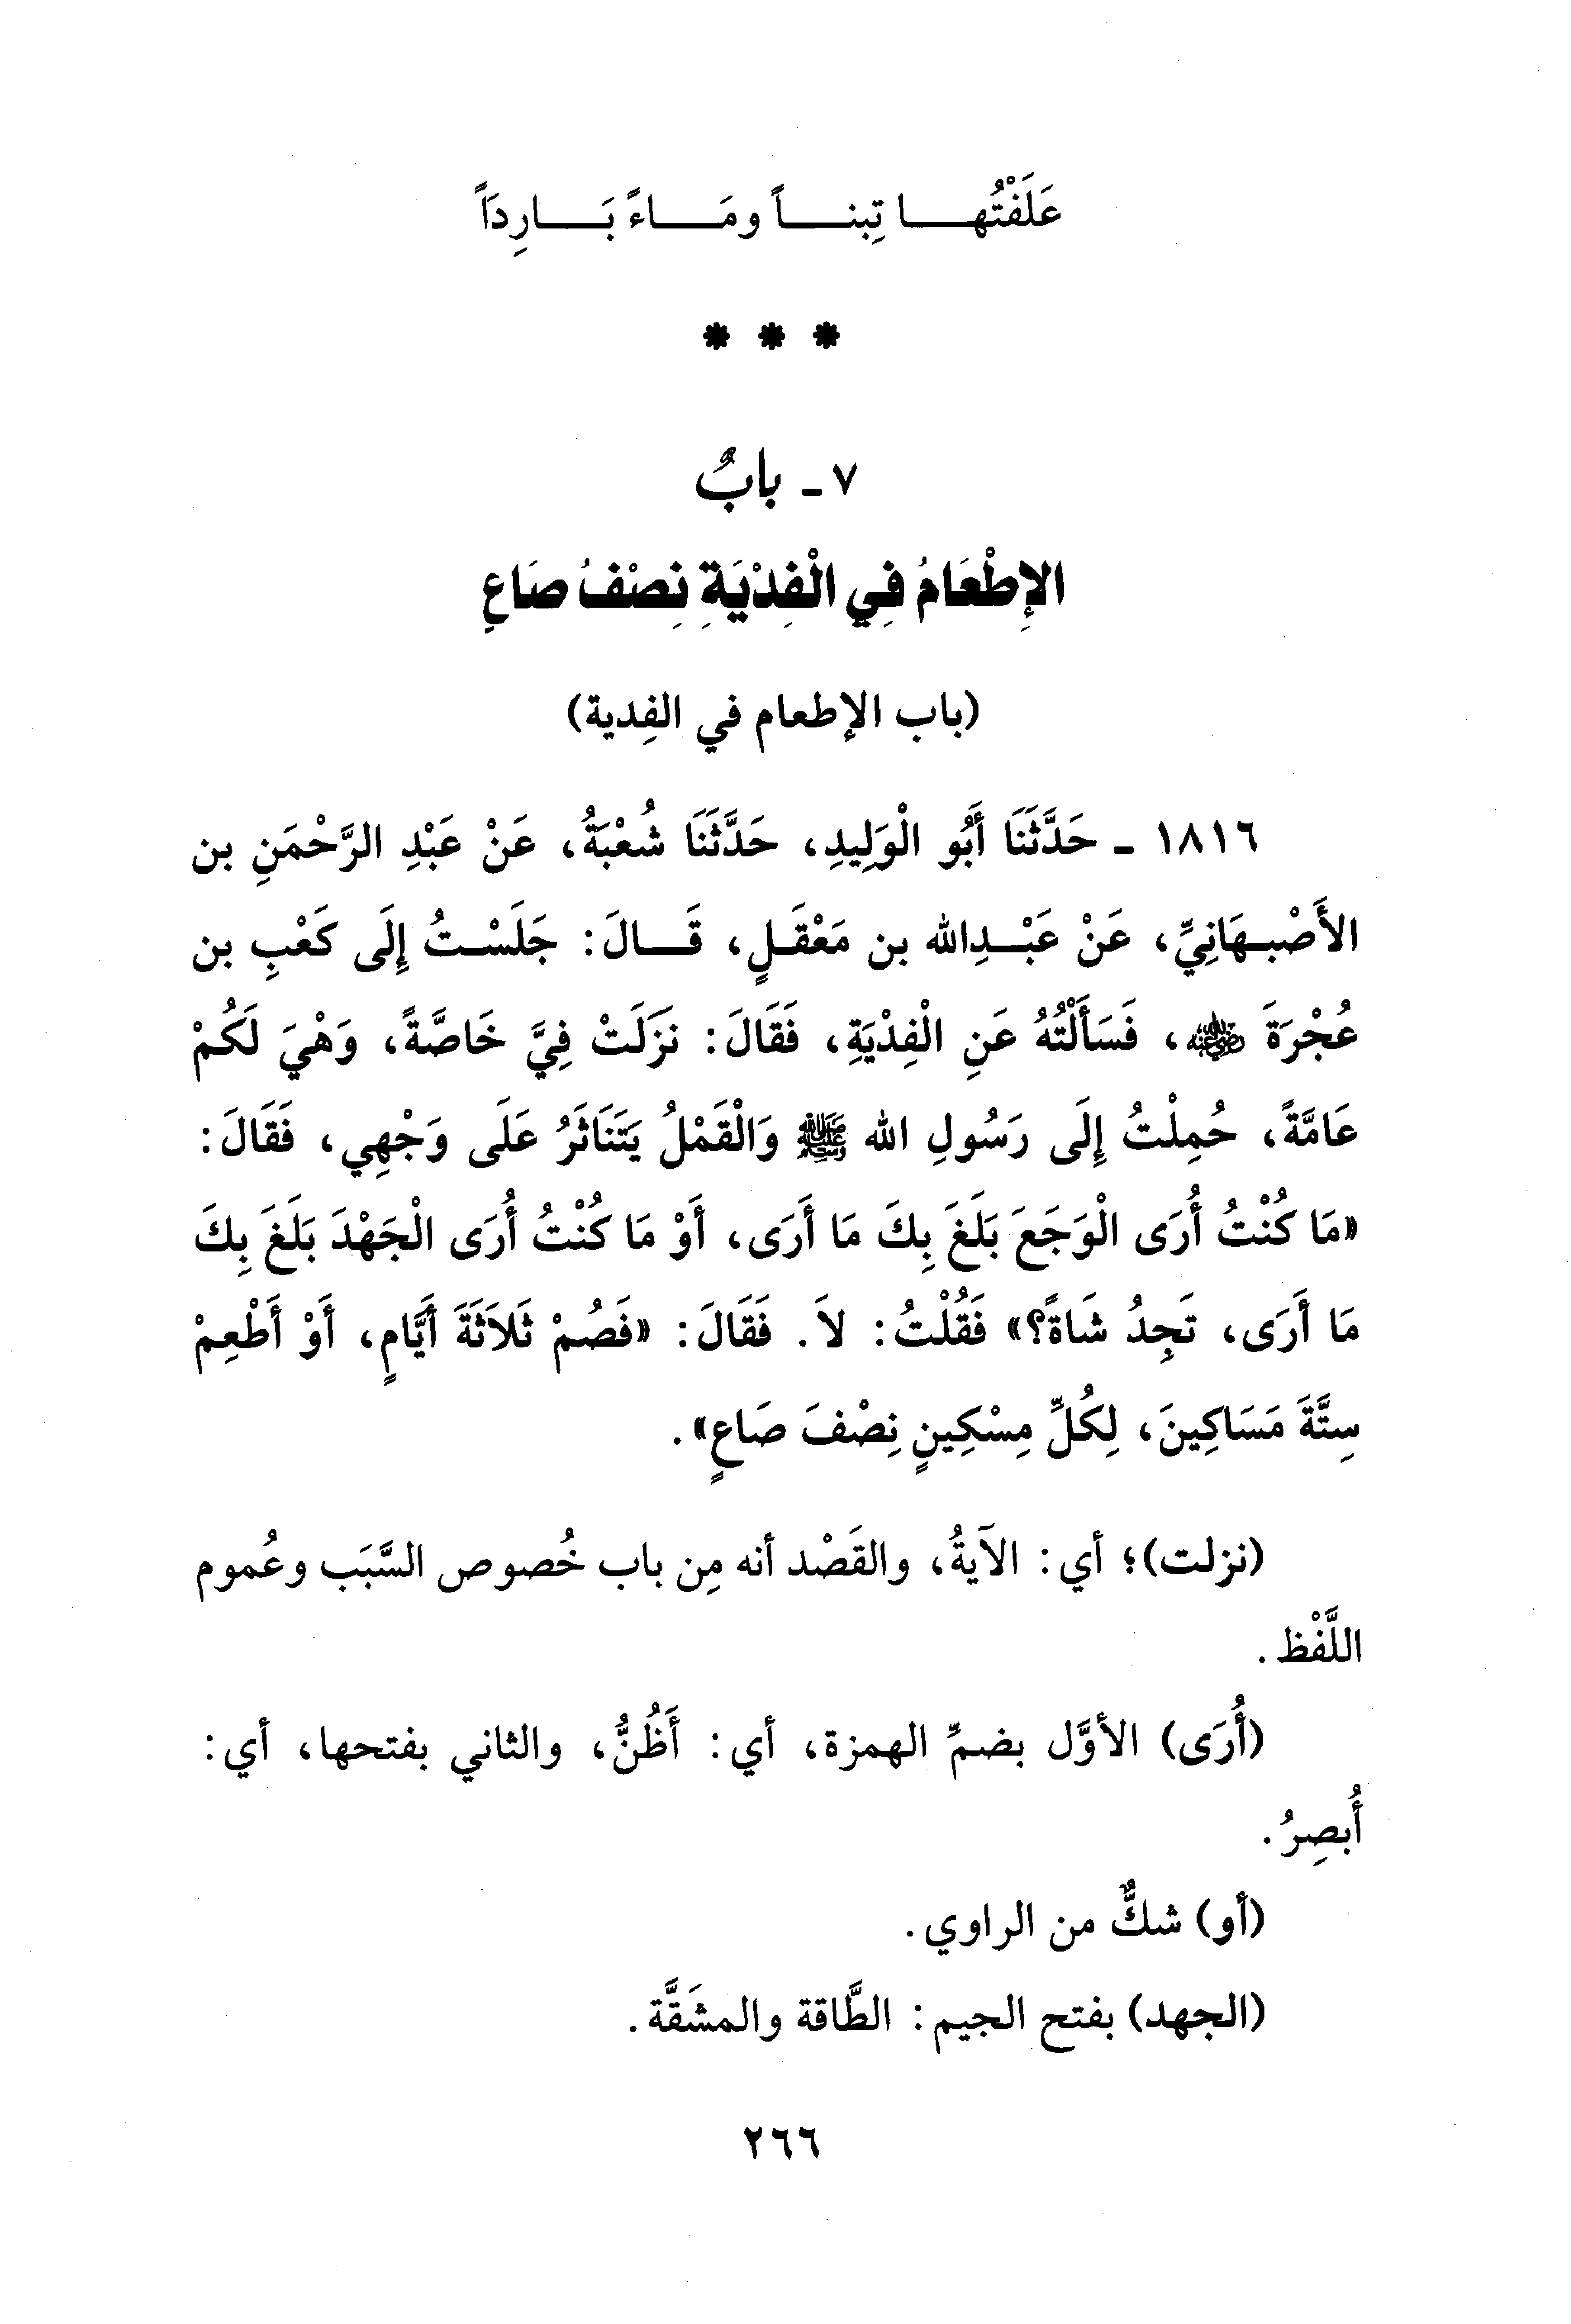 عَلَفْتُها تِبناً ومَاءً بَارِدَاً
* * *
٧ ـ بابٌ
الإِطْعَامُ فِي الْفِدْيَةِ نِصْفُ صَاعٍ
(باب الإطعام في الفِدية)
١٨١٦ ـ حَدَّثَنَا أَبُو الْوَلِيدِ، حَدَّثَنَا شُعْبَةُ، عَنْ عَبْدِ الرَّحْمَنِ بن
الأَصْبهَانِيِّ، عَنْ عَبْدِالله بن مَعْقَلٍ، قَالَ: جَلَسْتُ إِلَى كَعْبِ بن
عُجْرَةَ رضي الله عنه، فَسَأَلْتُهُ عَنِ الْفِدْيَةِ، فَقَالَ: نَزَلَتْ فِيَّ خَاصَّةً، وَهْيَ لَكُمْ
عَامَّةً، حُمِلْتُ إِلَى رَسُولِ الله ﷺ وَالْقَمْلُ يَتَنَاثَرُ عَلَى وَجْهِي، فَقَالَ:
«مَا كُنْتُ أُرَى الْوَجَعَ بَلَغَ بِكَ مَا أَرَى، أَوْ مَا كُنْتُ أُرَى الْجَهْدَ بَلَغَ بِكَ
مَا أَرَى، تَجِدُ شَاةً؟» فَقُلْتُ: لاَ. فَقَالَ: «فَصُمْ ثَلاَثَةَ أَيَّامٍ، أَوْ أَطْعِمْ
سِتَّةَ مَسَاكِينَ، لِكُلِّ مِسْكِينٍ نِصْفَ صَاعٍ».
(نزلت)؛ أي: الآيةُ، والقَصْد أنه مِن باب خُصوص السَّبَب وعُموم
اللَّفْظ.
(أُرَى) الأوَّل بضمِّ الهمزة، أي: أَظُنُّ، والثاني بفتحها، أي:
أُبصِرُ.
(أو) شكٌّ من الراوي.
(الجهد) بفتح الجيم: الطَّاقة والمشَقَّة.
٢٦٦